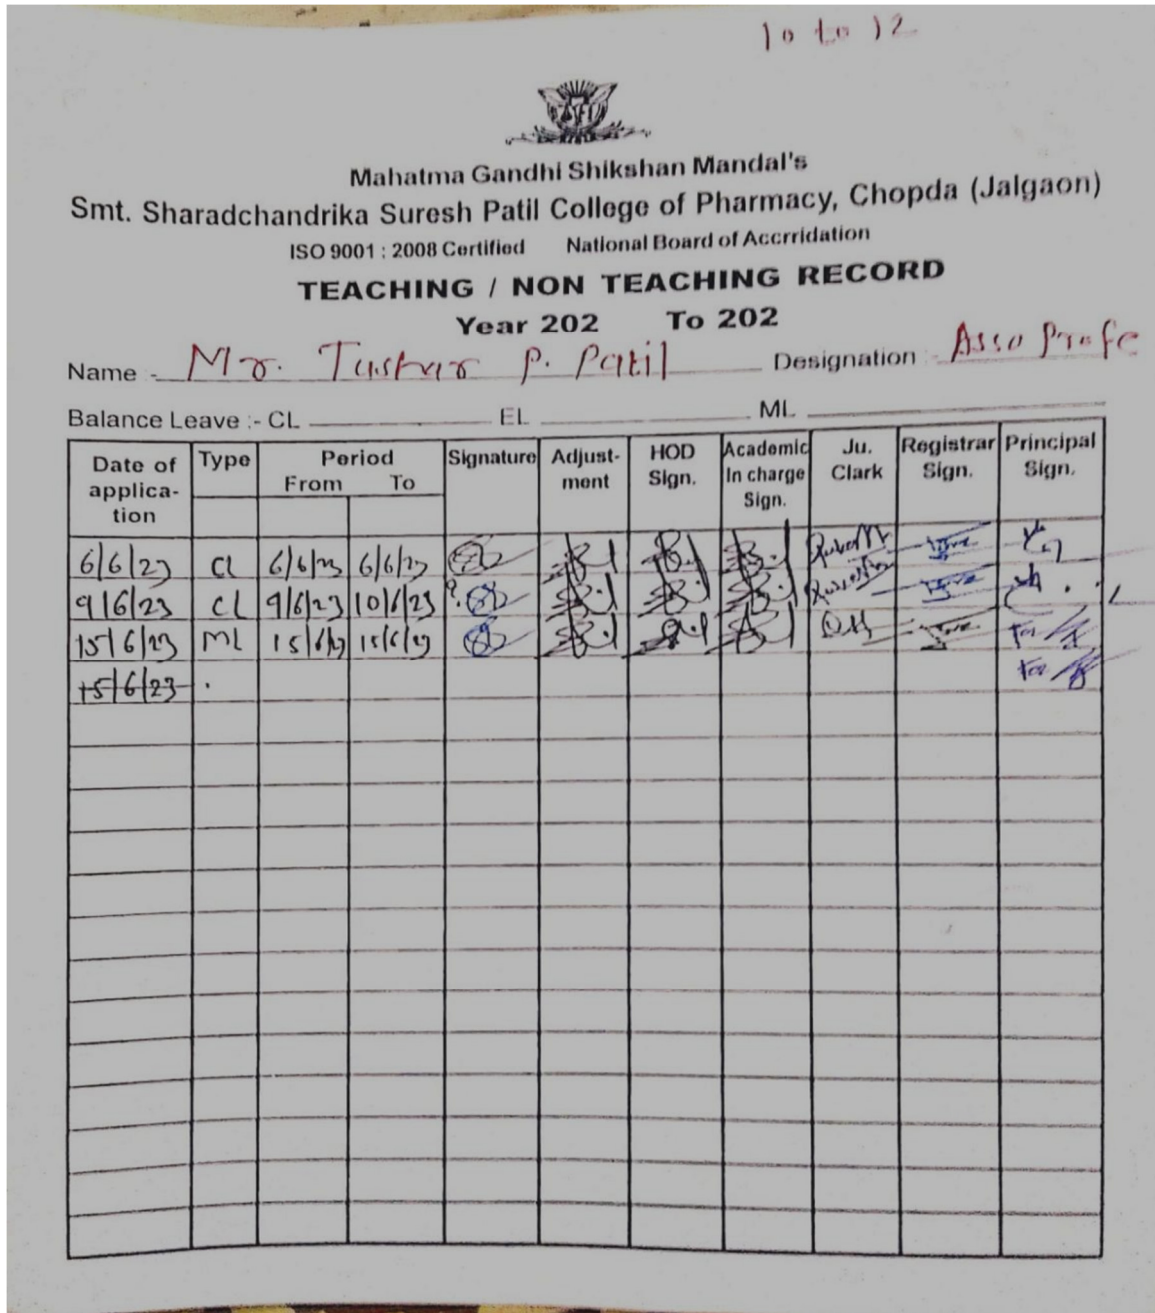 10 to 12
Mahatma Gandhi Shikshan Mandal's
Smt. Sharadchandrika Suresh Patil College of Pharmacy, Chopda (Jalgaon)
ISO 9001 : 2008 Certified National Board of Accrridation
TEACHING / NON TEACHING RECORD
Year 202 To 202
Name :- Mr. Tushar P. Patil Designation :- Asso Profe
Balance Leave :- CL EL ML
Date of applica-tion Type Period From To Signature Adjust-ment HOD Sign. Academic In charge Sign. Ju. Clark Registrar Sign. Principal Sign.
6/6/23 CL 6/6/23 6/6/23
9/6/23 CL 9/6/23 10/6/23
15/6/23 ML 15/6/23 15/6/23 For
15/6/23 For